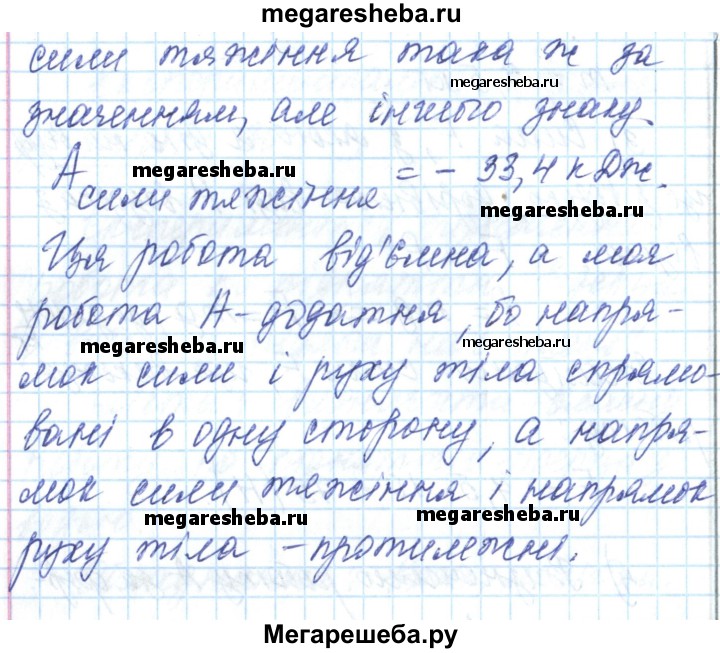 megaresheba.ru
сили тяжіння така ж за
megaresheba.ru
значенням, але іншого знаку.
A сили тяжіння = - 33,4 кДж.
megaresheba.ru
megaresheba.ru
Ця робота від'ємна, а моя
робота А - додатня, бо напря-
megaresheba.ru
megaresheba.ru
мок сили і руху тіла спрямо-
вані в одну сторону, а напря-
мок сили тяжіння і напрямок
megaresheba.ru
megaresheba.ru
руху тіла - протилежні.
Мегарешеба.ру